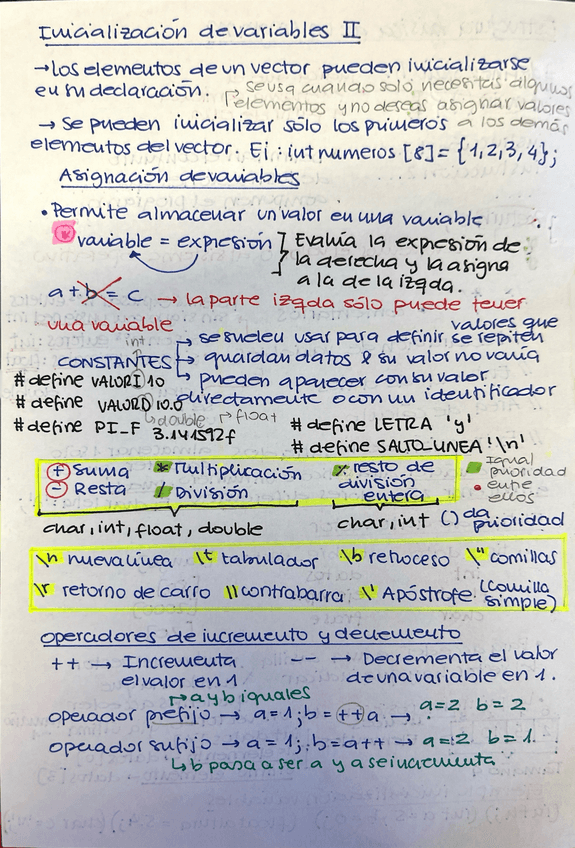 Inicialización de variables II
→ los elementos de un vector pueden inicializarse
en su declaración. → se usa cuando solo necesitas algunos
elementos y no deseas asignar valores
→ Se pueden inicializar sólo los primeros a los demás
elementos del vector. Ej: int numeros [8] = {1,2,3,4};
Asignación de variables
• Permite almacenar un valor en una variable
* variable = expresión ] Evalúa la expresión de
la derecha y la asigna
a la de la izqda.
a + b = c → la parte izqda sólo puede tener
una variable
valores que
→ se suelen usar para definir se repiten
int
CONSTANTES → guardan datos & su valor no varía
→ pueden aparecer con su valor
directamente o con un identificador
# define VALORI 10
# define VALORD 10.0
↳ double → float
# define PI_F 3.141592f
# define LETRA 'y'
# define SALTO_LINEA '\n'
+ Suma * Multiplicación % resto de división entera
- Resta / División
Igual prioridad entre ellos
char, int, float, double char, int () da prioridad
\n nueva línea \t tabulador \b retroceso \" comillas
\r retorno de carro \\ contrabarra \' Apóstrofe (comilla simple)
operadores de incremento y decremento
++ → Incrementa -- → Decrementa el valor
el valor en 1 de una variable en 1.
↱ a y b iguales
operador prefijo → a=1; b= ++a → a=2 b=2
operador sufijo → a=1; b=a++ → a=2 b=1
↳ b pasa a ser a y a se incrementa